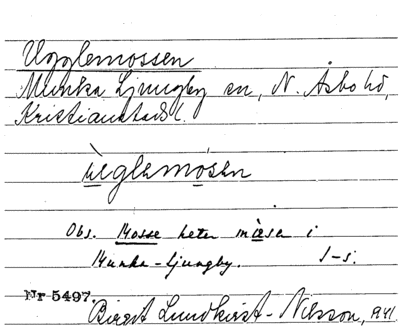 Ugglemossen
Munka Ljungby sn, N. Åsbo hd,
Kristianstads l.
ùglemosen
Obs. Mosse heter mæsa i
Munka-Ljungby. J-s.
Nr 5497.
Birgit Lundkvist-Nilsson, 1941.